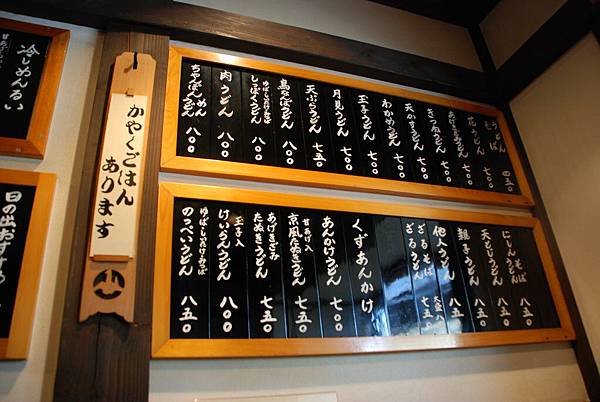 うどん そば 四三〇
花うどん
あげきざみうどん
きつねうどん 七〇〇
天かすうどん 七〇〇
わかめうどん 七〇〇
玉子うどん 七〇〇
月見うどん 七〇〇
天ぷらうどん 七五〇
鳥なばうどん 八〇〇
しっぽくうどん 八〇〇
肉うどん 八〇〇
ちゃんぽんうどん めん 八〇〇
にしんうどん そば 八五〇
天とじうどん 八五〇
親子うどん 八五〇
他人うどん 八五〇
ざるそば ざるうどん 大盛八 七五〇
くずあんかけ
あんかけうどん 七〇〇
甘あげ入 京風たぬきうどん 七五〇
あげきざみ たぬきうどん 七五〇
玉子入 けいらんうどん 八〇〇
ゆば しいたけ かまぼこ のっぺいうどん 八五〇
かやくごはん
あります
冷しめんるい
日の出おすすめ